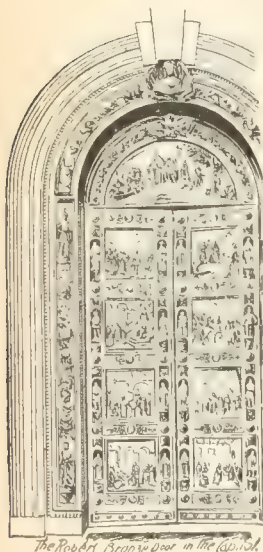 The Rogers Bronze Door in the Capitol